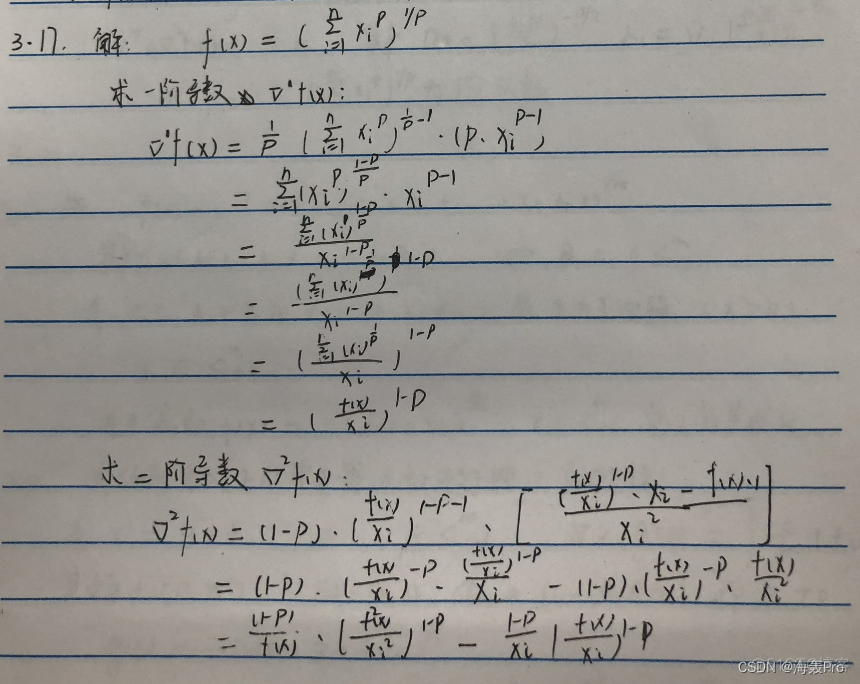 3.17. 解: f(x) = ( \sum_{i=1}^{n} x_i^p )^{1/p}
求一阶导数 ∇'f(x):
∇'f(x) = \frac{1}{p} ( \sum_{i=1}^{n} x_i^p )^{\frac{1}{p}-1} · (p · x_i^{p-1})
= \sum_{i=1}^{n} (x_i^p)^{\frac{1-p}{p}} · x_i^{p-1}
= \frac{\sum_{i=1}^{n} (x_i^p)^{\frac{1-p}{p}}}{x_i^{1-p}}
= \frac{( \sum_{i=1}^{n} (x_i) )^{1-p}}{x_i^{1-p}}
= ( \frac{\sum_{i=1} (x_i)^{\frac{1}{p}}}{x_i} )^{1-p}
= ( \frac{f(x)}{x_i} )^{1-p}
求二阶导数 ∇^2 f(x):
∇^2 f(x) = (1-p) · ( \frac{f(x)}{x_i} )^{1-p-1} · [ \frac{( \frac{f(x)}{x_i} )^{1-p} · x_i - f(x) · 1}{x_i^2} ]
= (1-p) · ( \frac{f(x)}{x_i} )^{-p} · \frac{( \frac{f(x)}{x_i} )^{1-p}}{x_i} - (1-p) · ( \frac{f(x)}{x_i} )^{-p} · \frac{f(x)}{x_i^2}
= \frac{(1-p)}{f(x)} · ( \frac{f^2(x)}{x_i^2} )^{1-p} - \frac{1-p}{x_i} ( \frac{f(x)}{x_i} )^{1-p}
CSDN @海轰Pro